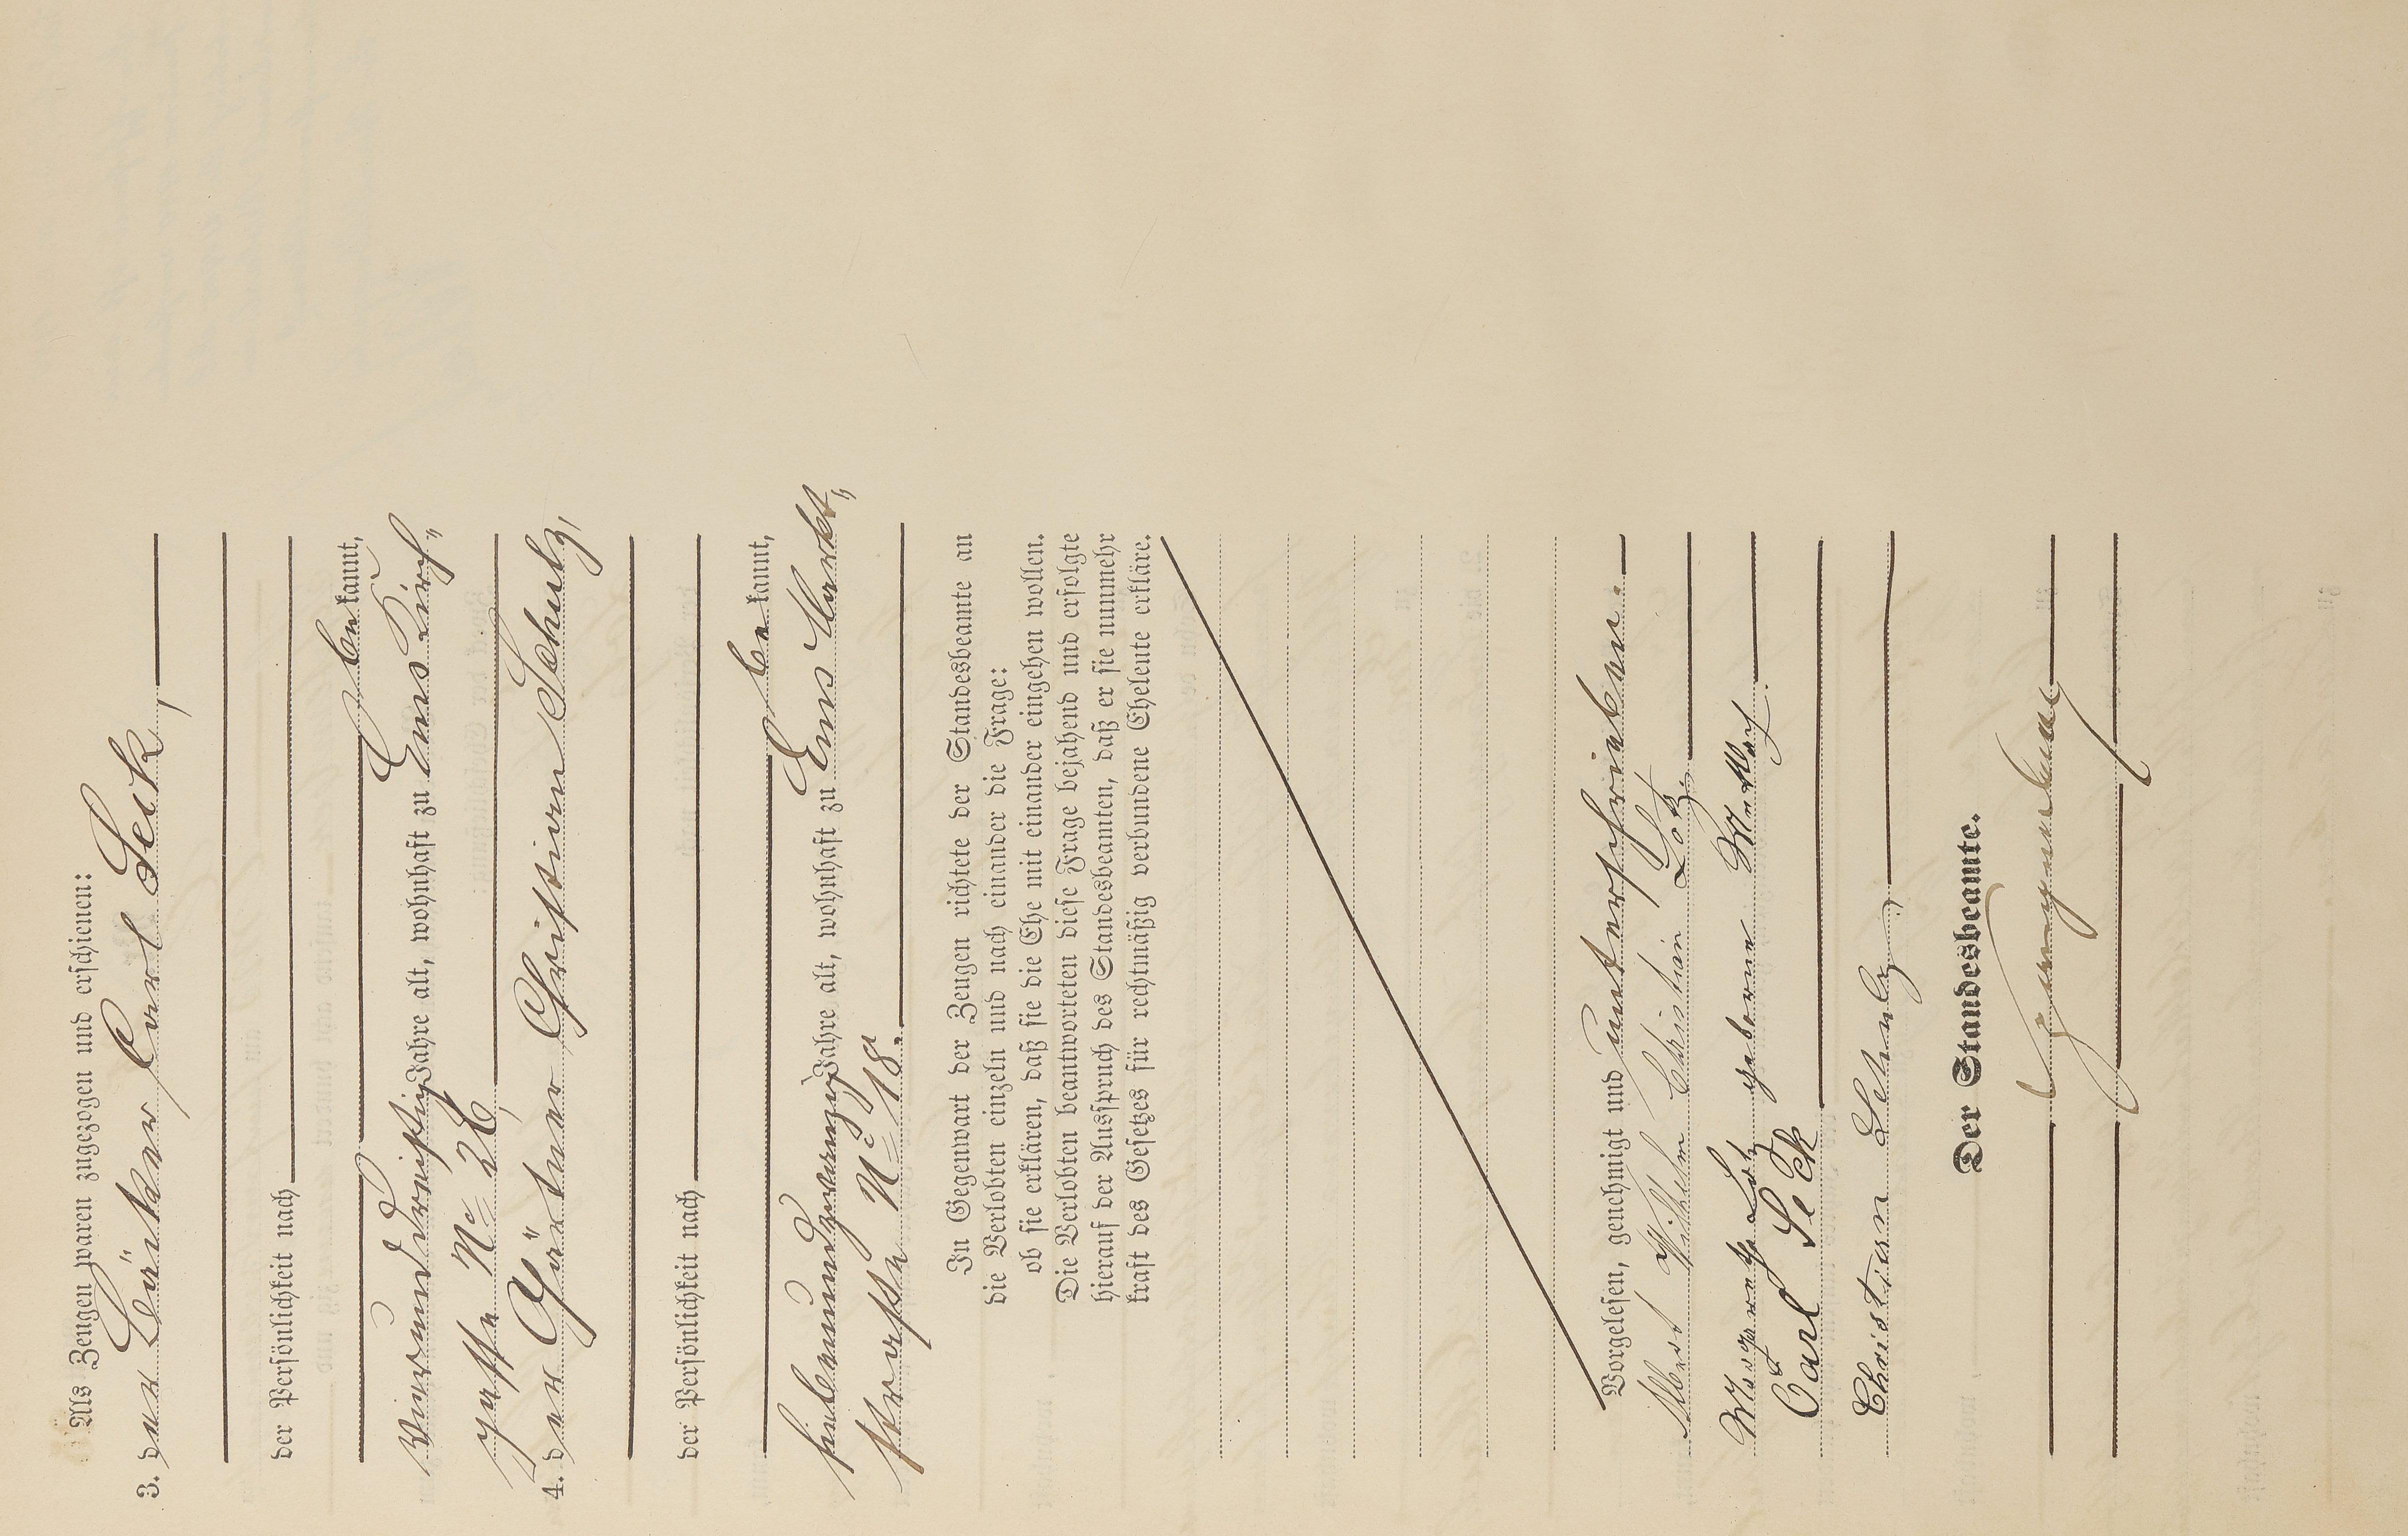 Als Zeugen waren zugezogen und erschienen:
3. der Bäcker Carl Seik,
der Persönlichkeit nach
bekannt,
vierunddreißig Jahre alt, wohnhaft zu Ems Kirch-
gasse No 26,
4. der Gärtner Christian Schulz,
der Persönlichkeit nach
bekannt,
siebenundzwanzig Jahre alt, wohnhaft zu Ems Markt-
straße No 18.
In Gegenwart der Zeugen richtete der Standesbeamte an
die Verlobten einzeln und nach einander die Frage:
ob sie erklären, daß sie die Ehe mit einander eingehen wollen.
Die Verlobten beantworteten diese Frage bejahend und erfolgte
hierauf der Ausspruch des Standesbeamten, daß er sie nunmehr
kraft des Gesetzes für rechtmäßig verbundene Eheleute erkläre.
Vorgelesen, genehmigt und unterschrieben.
Albert Wilhelm Christian Lotz.
Margarethe Lotz geborene
Carl Seik
Christian Schulz.
Der Standesbeamte.